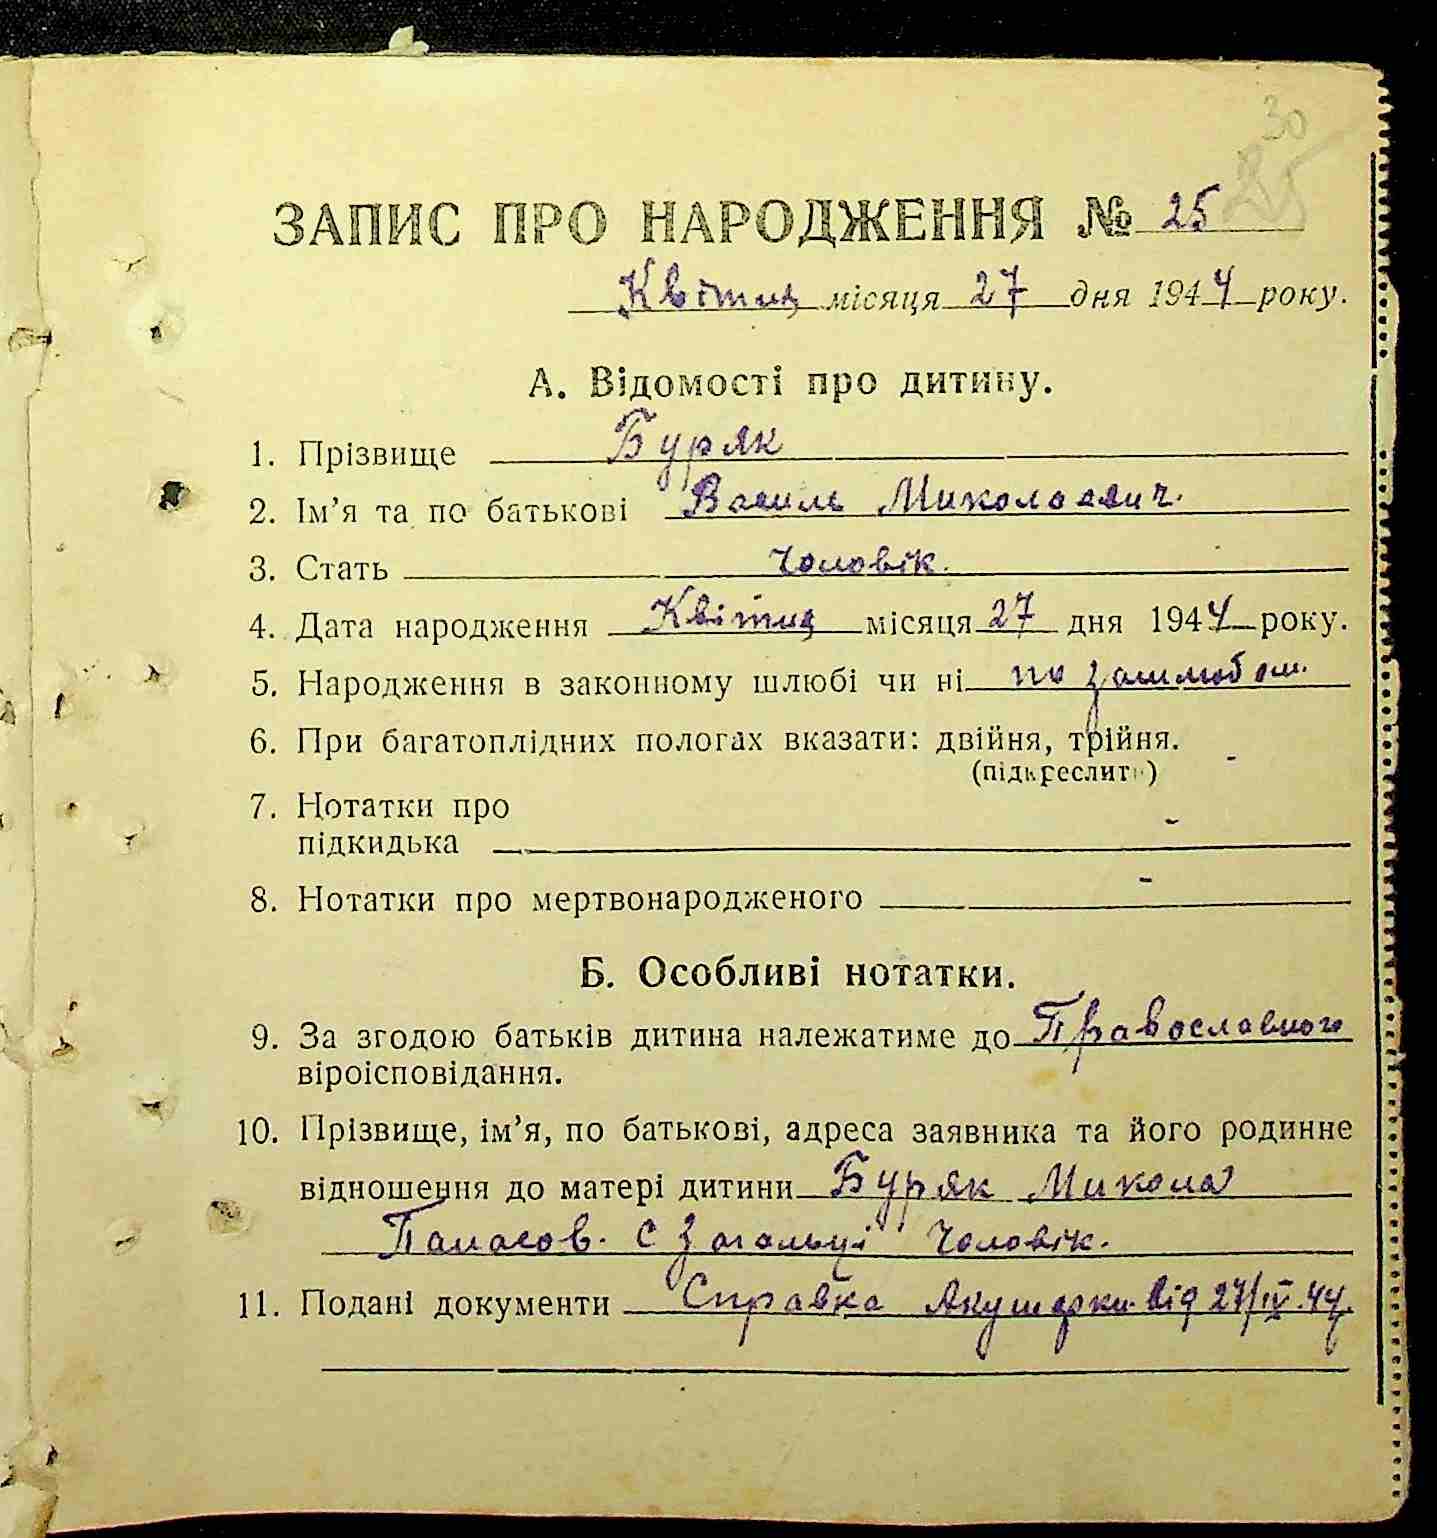 30
25
ЗАПИС ПРО НАРОДЖЕННЯ № 25
Квітня місяця 27 дня 1944 року.
А. Відомості про дитину.
1. Прізвище Буряк
2. Ім’я та по батькові Василь Миколаевич.
3. Стать Чоловік.
4. Дата народження Квітня місяця 27 дня 1944 року.
5. Народження в законному шлюбі чи ні по зашлюбом.
6. При багатоплідних пологах вказати: двійня, трійня. -
(підкреслити)
7. Нотатки про
підкидька -
8. Нотатки про мертвонародженого -
Б. Особливі нотатки.
9. За згодою батьків дитина належатиме до Православного
віроісповідання.
10. Прізвище, ім’я, по батькові, адреса заявника та його родинне
відношення до матері дитини Буряк Микола
Панасов. С Загальці Чоловік.
11. Подані документи Справка Якушерки від 27/IV.44.